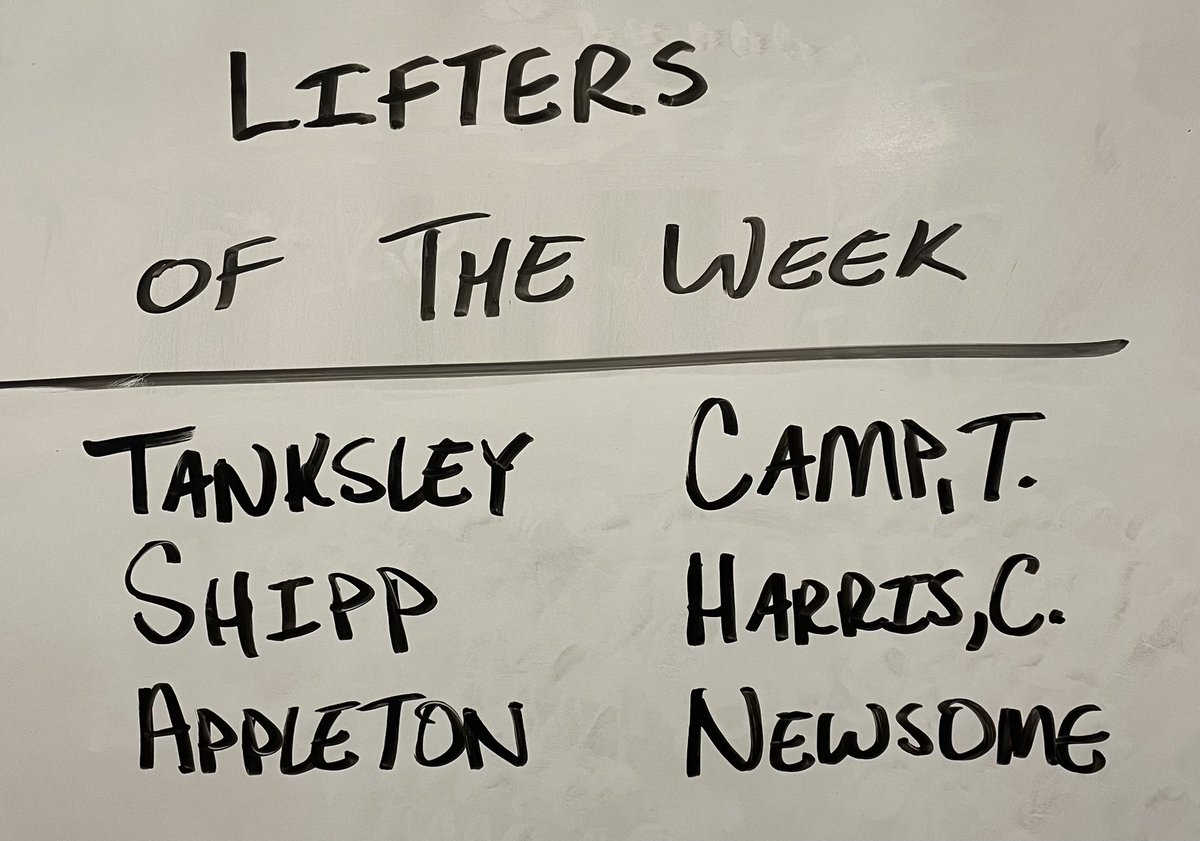 LIFTERS
OF THE WEEK
TANKSLEY CAMP, T.
SHIPP HARRIS, C.
APPLETON NEWSOME